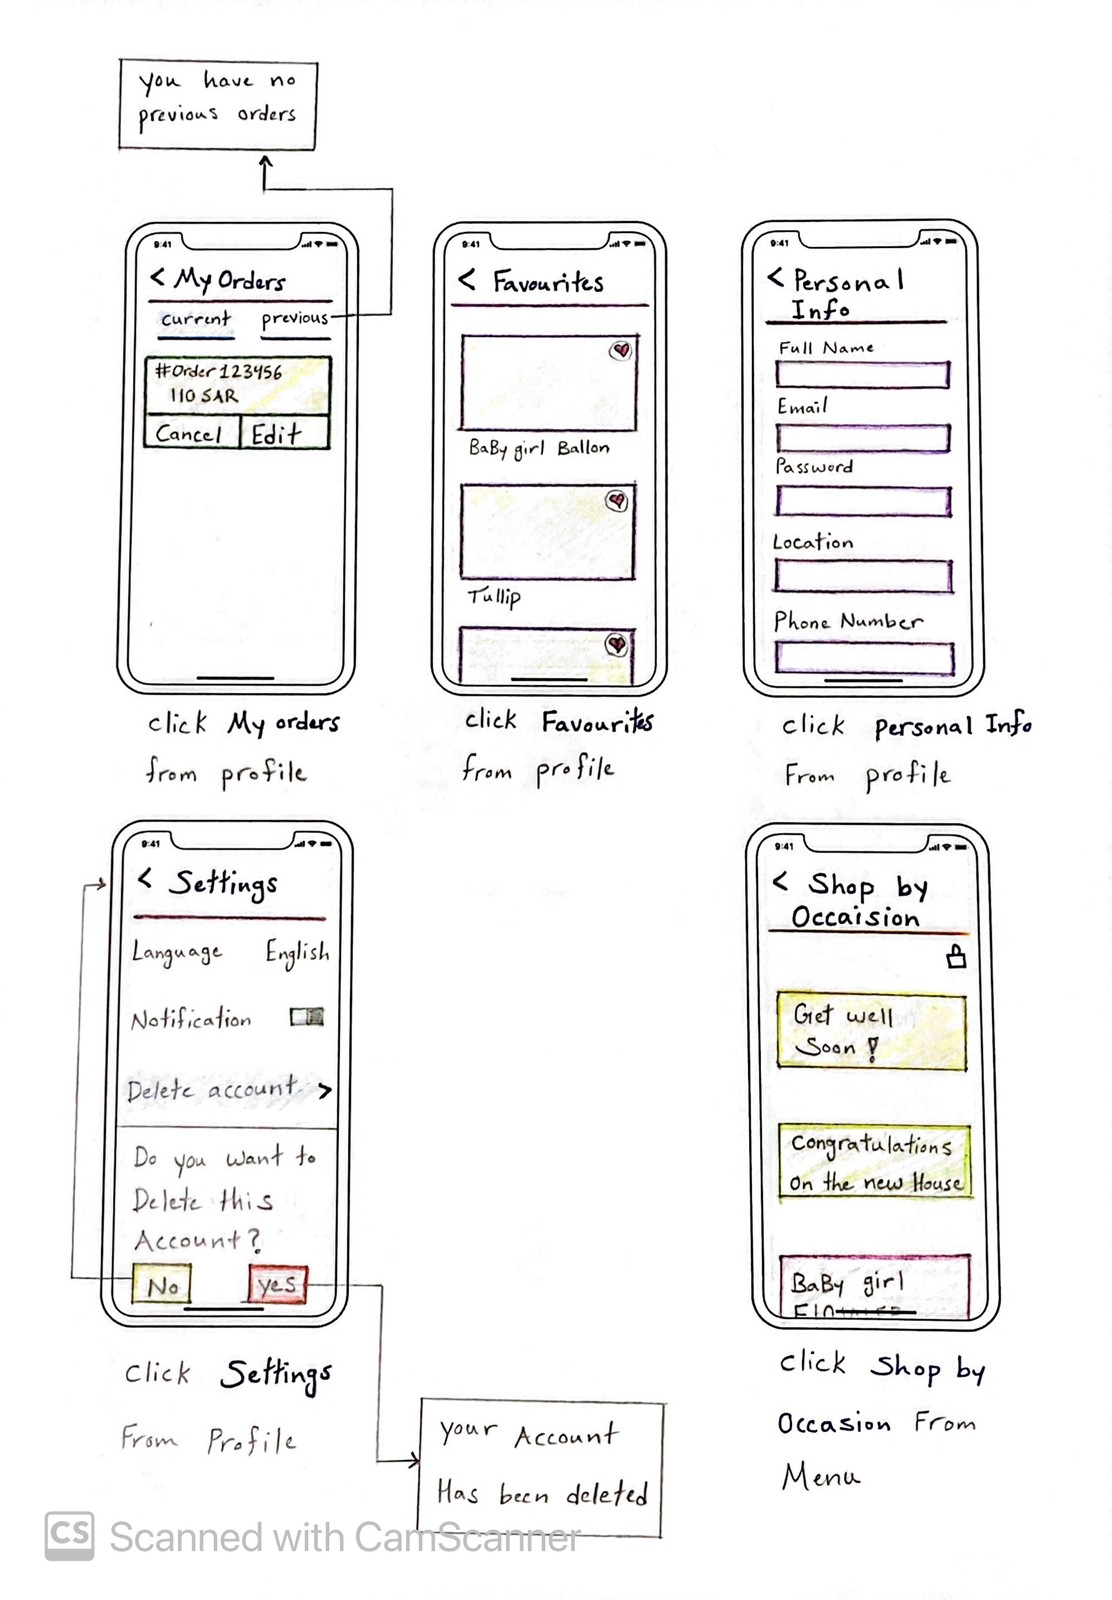 you have no
previous orders
9:41
< My Orders
current previous
#Order 123456
110 SAR
Cancel Edit
click My orders
from profile
9:41
< Favourites
BaBy girl Ballon
Tullip
click Favourites
from profile
9:41
< Personal
Info
Full Name
Email
Password
Location
Phone Number
click personal Info
From profile
9:41
< Settings
Language English
Notification
Delete account >
Do you want to
Delete this
Account?
No yes
click Settings
From Profile
your Account
Has been deleted
9:41
< Shop by
Occaision
Get well
Soon!
Congratulations
on the new House
BaBy girl
click Shop by
Occasion From
Menu
CS Scanned with CamScanner